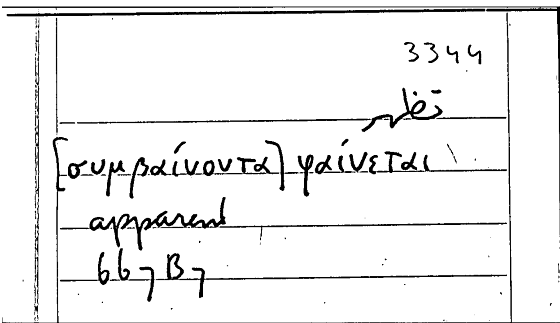 3344
تظهر
[συμβαίνοντα] φαίνεται
apparent
667 B 7